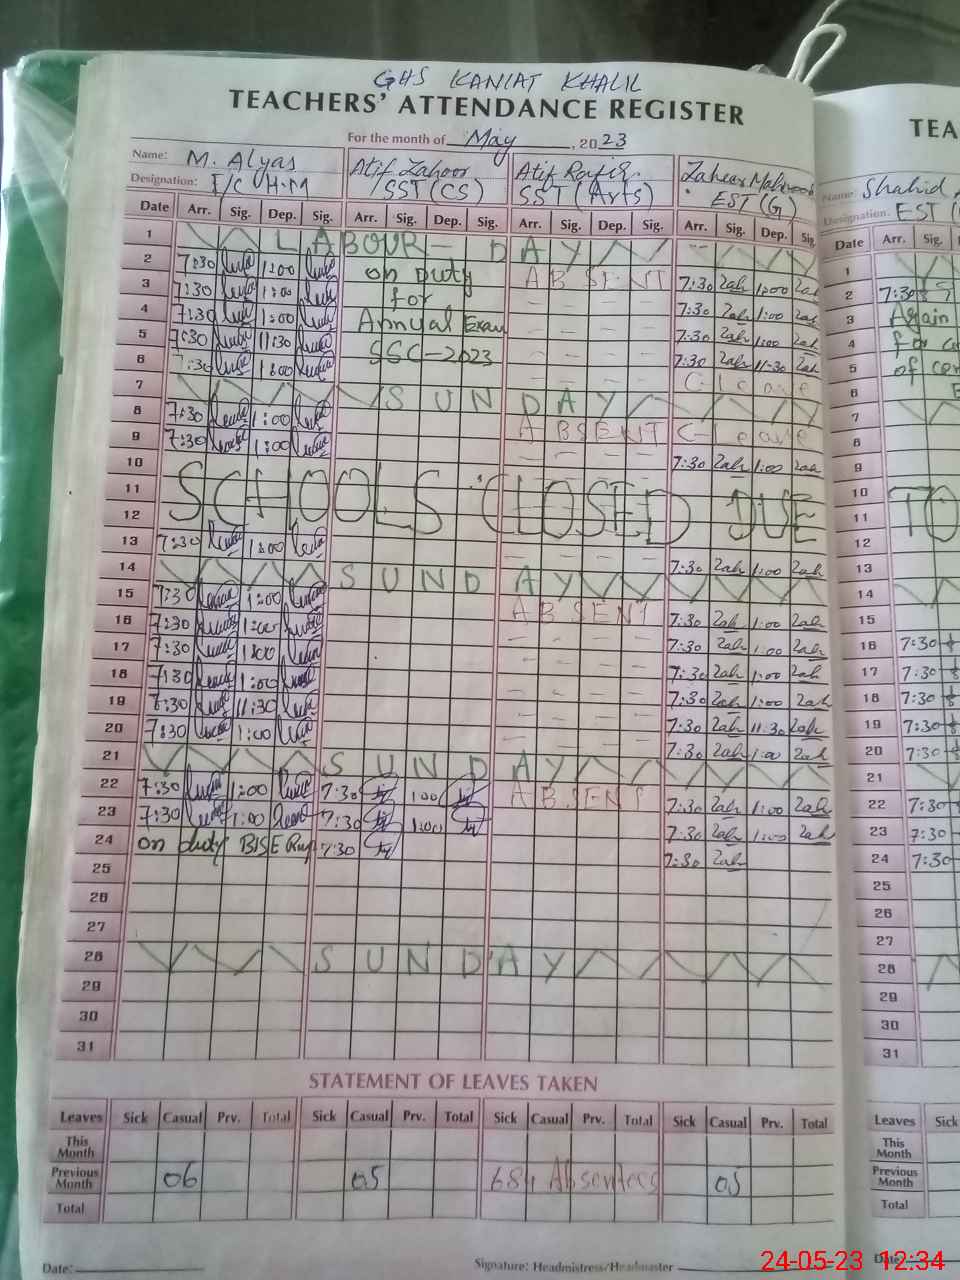 GHS KANIAT KHALIL
TEACHERS' ATTENDANCE REGISTER
For the month of May, 2023
Name: M. Alyas Atif Zahoor Atif Rafiq Zaheer Mahmood
Designation: I/C H.M SST (CS) SST (Arts) EST (G)
Date Arr. Sig. Dep. Sig. Arr. Sig. Dep. Sig. Arr. Sig. Dep. Sig. Arr. Sig. Dep. Sig.
1 LABOUR - DAY
2 7:30 1:00 on duty ABSENT 7:30 Zah 1:00 Zah
3 7:30 1:00 for 7:30 Zah 1:00 Zah
4 7:30 1:00 Annual Exam 7:30 Zah 1:00 Zah
5 7:30 11:30 SSC-2023 7:30 Zah 11:30 Zah
6 7:30 1:00 C-Leave
7 SUNDAY
8 7:30 1:00 ABSENT C-Leave
9 7:30 1:00 7:30 Zah 1:00 Zah
10
11 SCHOOLS CLOSED DUE
12
13 7:30 1:00 7:30 Zah 1:00 Zah
14 SUNDAY
15 7:30 1:00 ABSENT 7:30 Zah 1:00 Zah
16 7:30 1:00 7:30 Zah 1:00 Zah
17 7:30 1:00 7:30 Zah 1:00 Zah
18 7:30 1:00 7:30 Zah 1:00 Zah
19 7:30 11:30 7:30 Zah 11:30 Zah
20 7:30 1:00 7:30 Zah 1:00 Zah
21 SUNDAY
22 7:30 1:00 7:30 1:00 ABSENT 7:30 Zah 1:00 Zah
23 7:30 1:00 7:30 1:00 7:30 Zah 1:00 Zah
24 on duty BISE 7:30 7:30 Zah
25
26
27
28 SUNDAY
29
30
31
STATEMENT OF LEAVES TAKEN
Leaves Sick Casual Prv. Total Sick Casual Prv. Total Sick Casual Prv. Total Sick Casual Prv. Total
This Month
Previous Month 06 05 Absentees 05
Total
Date: Signature: Headmistress/Headmaster
TEA
Name: Shahid
Designation. EST
Date Arr. Sig.
1
2 7:30
3 Again
4 for
5 of
6
7
8
9
10 TO
11
12
13
14
15
16 7:30
17 7:30
18 7:30
19 7:30
20 7:30
21
22 7:30
23 7:30
24 7:30
25
26
27
28
29
30
31
Leaves Sick
This Month
Previous Month
Total
Date:
24-05-23 12:34